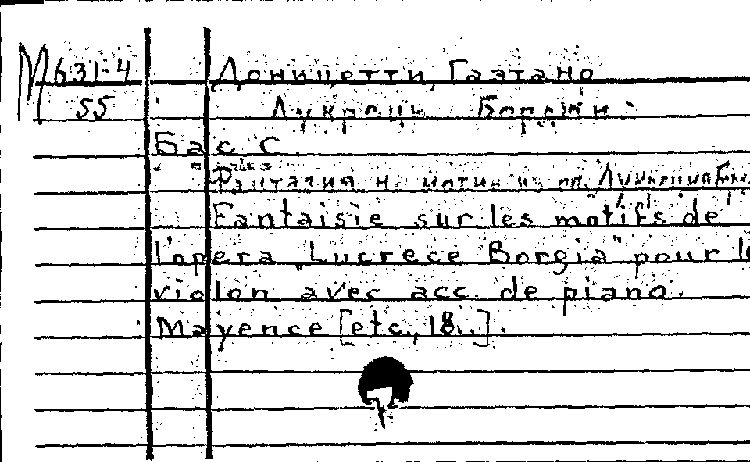 М 631-4 Доницетти, Гаэтано
55 Лукреция Борджи
Басс С.
Фантазия на мотивы из оп. Лукреция Бор
Fantaisie sur les motifs de
l'opera „Lucrece Borgia" pour le
violon avec acc. de piano.
Mayence [etc., 18..].